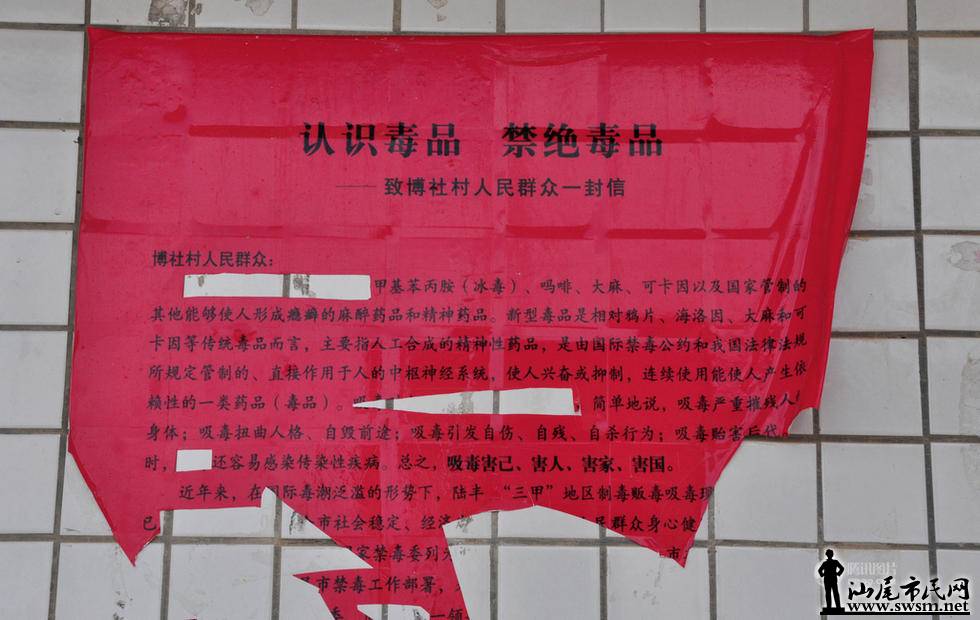 认识毒品 禁绝毒品
——致博社村人民群众一封信
博社村人民群众：
甲基苯丙胺（冰毒）、吗啡、大麻、可卡因以及国家管制的
其他能够使人形成瘾癖的麻醉药品和精神药品。新型毒品是相对鸦片、海洛因、大麻和可
卡因等传统毒品而言，主要指人工合成的精神性药品，是由国际禁毒公约和我国法律法规
所规定管制的、直接作用于人的中枢神经系统，使人兴奋或抑制，连续使用能使人产生依
赖性的一类药品（毒品）。吸 简单地说，吸毒严重摧残人
身体；吸毒扭曲人格、自毁前途；吸毒引发自伤、自残、自杀行为；吸毒贻害后代
时， 还容易感染传染性疾病。总之，吸毒害己、害人、害家、害国。
近年来，在国际毒潮泛滥的形势下，陆丰“三甲”地区制毒贩毒吸毒
已 市社会稳定、经济 民群众身心健
家禁毒委列 市
市禁毒工作部署，
一领
腾讯图片
汕尾市民网
www.swsm.net